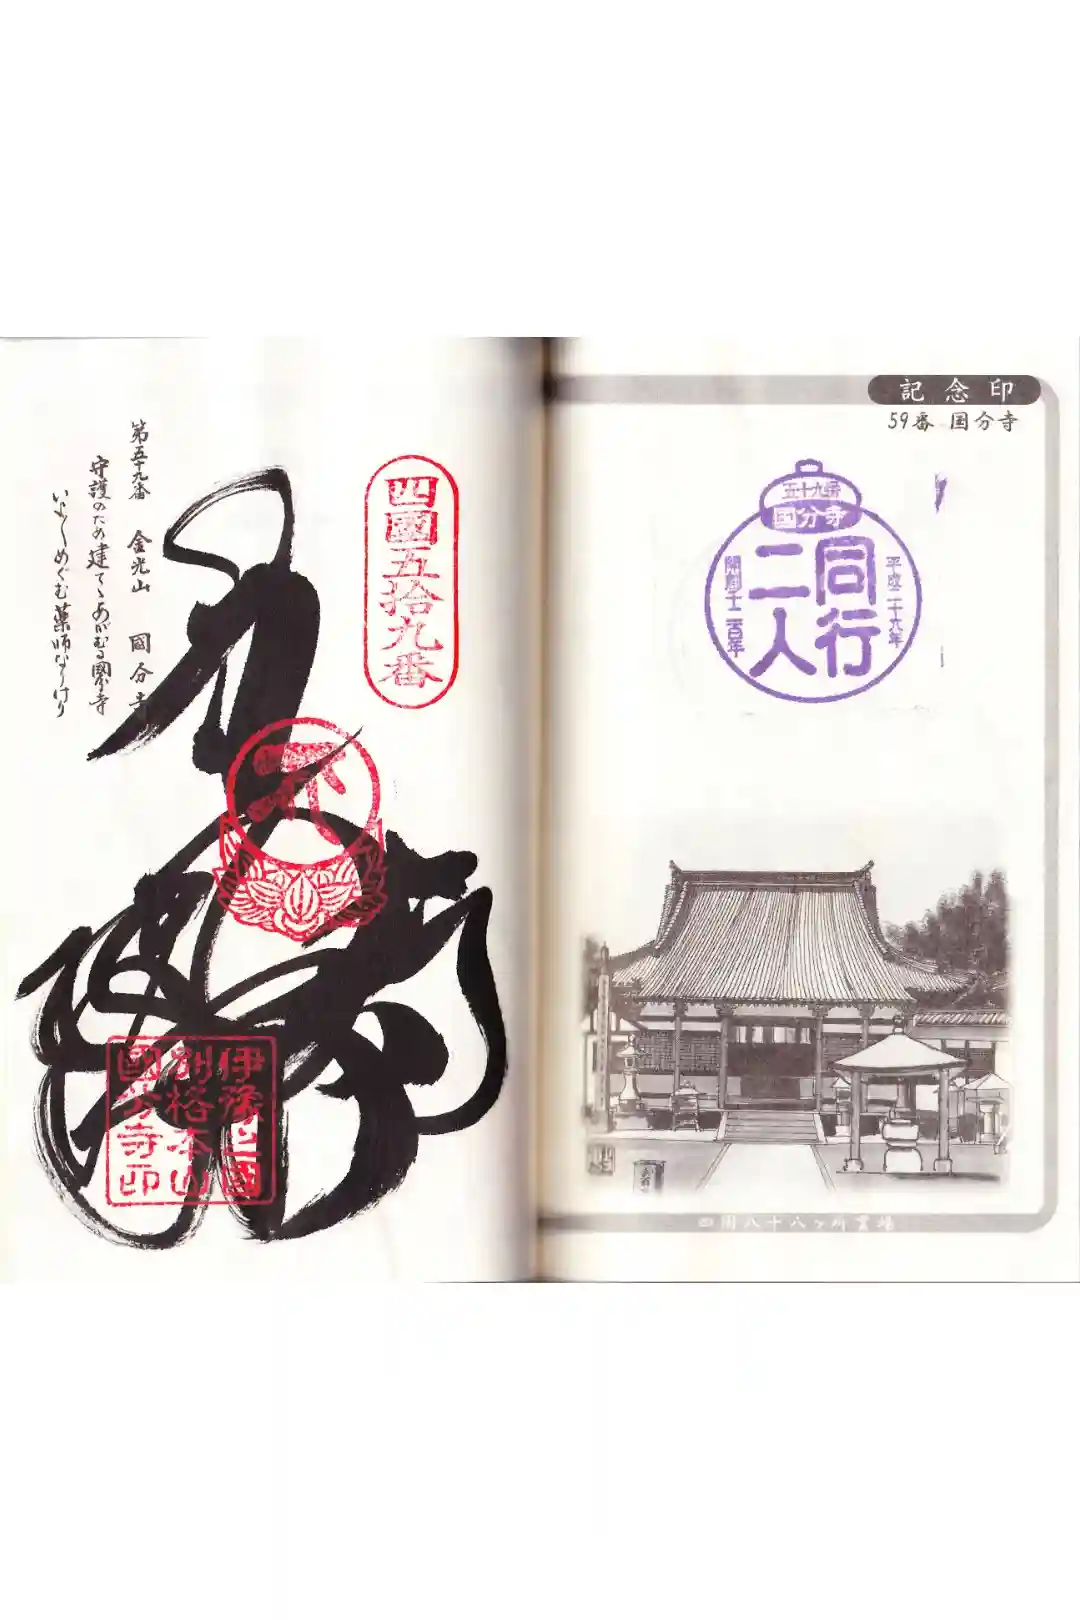 第五十九番 金光山 國分寺
守護のため建てゝあがむる國分寺
いよ〳〵めぐむ薬師なりけり
四國五拾九番
伊豫之國
別格本山
國分寺印
記念印
59番 国分寺
五十九番
國分寺
同行
二人
平成二十六年
開創千二百年
四国八十八ヶ所霊場